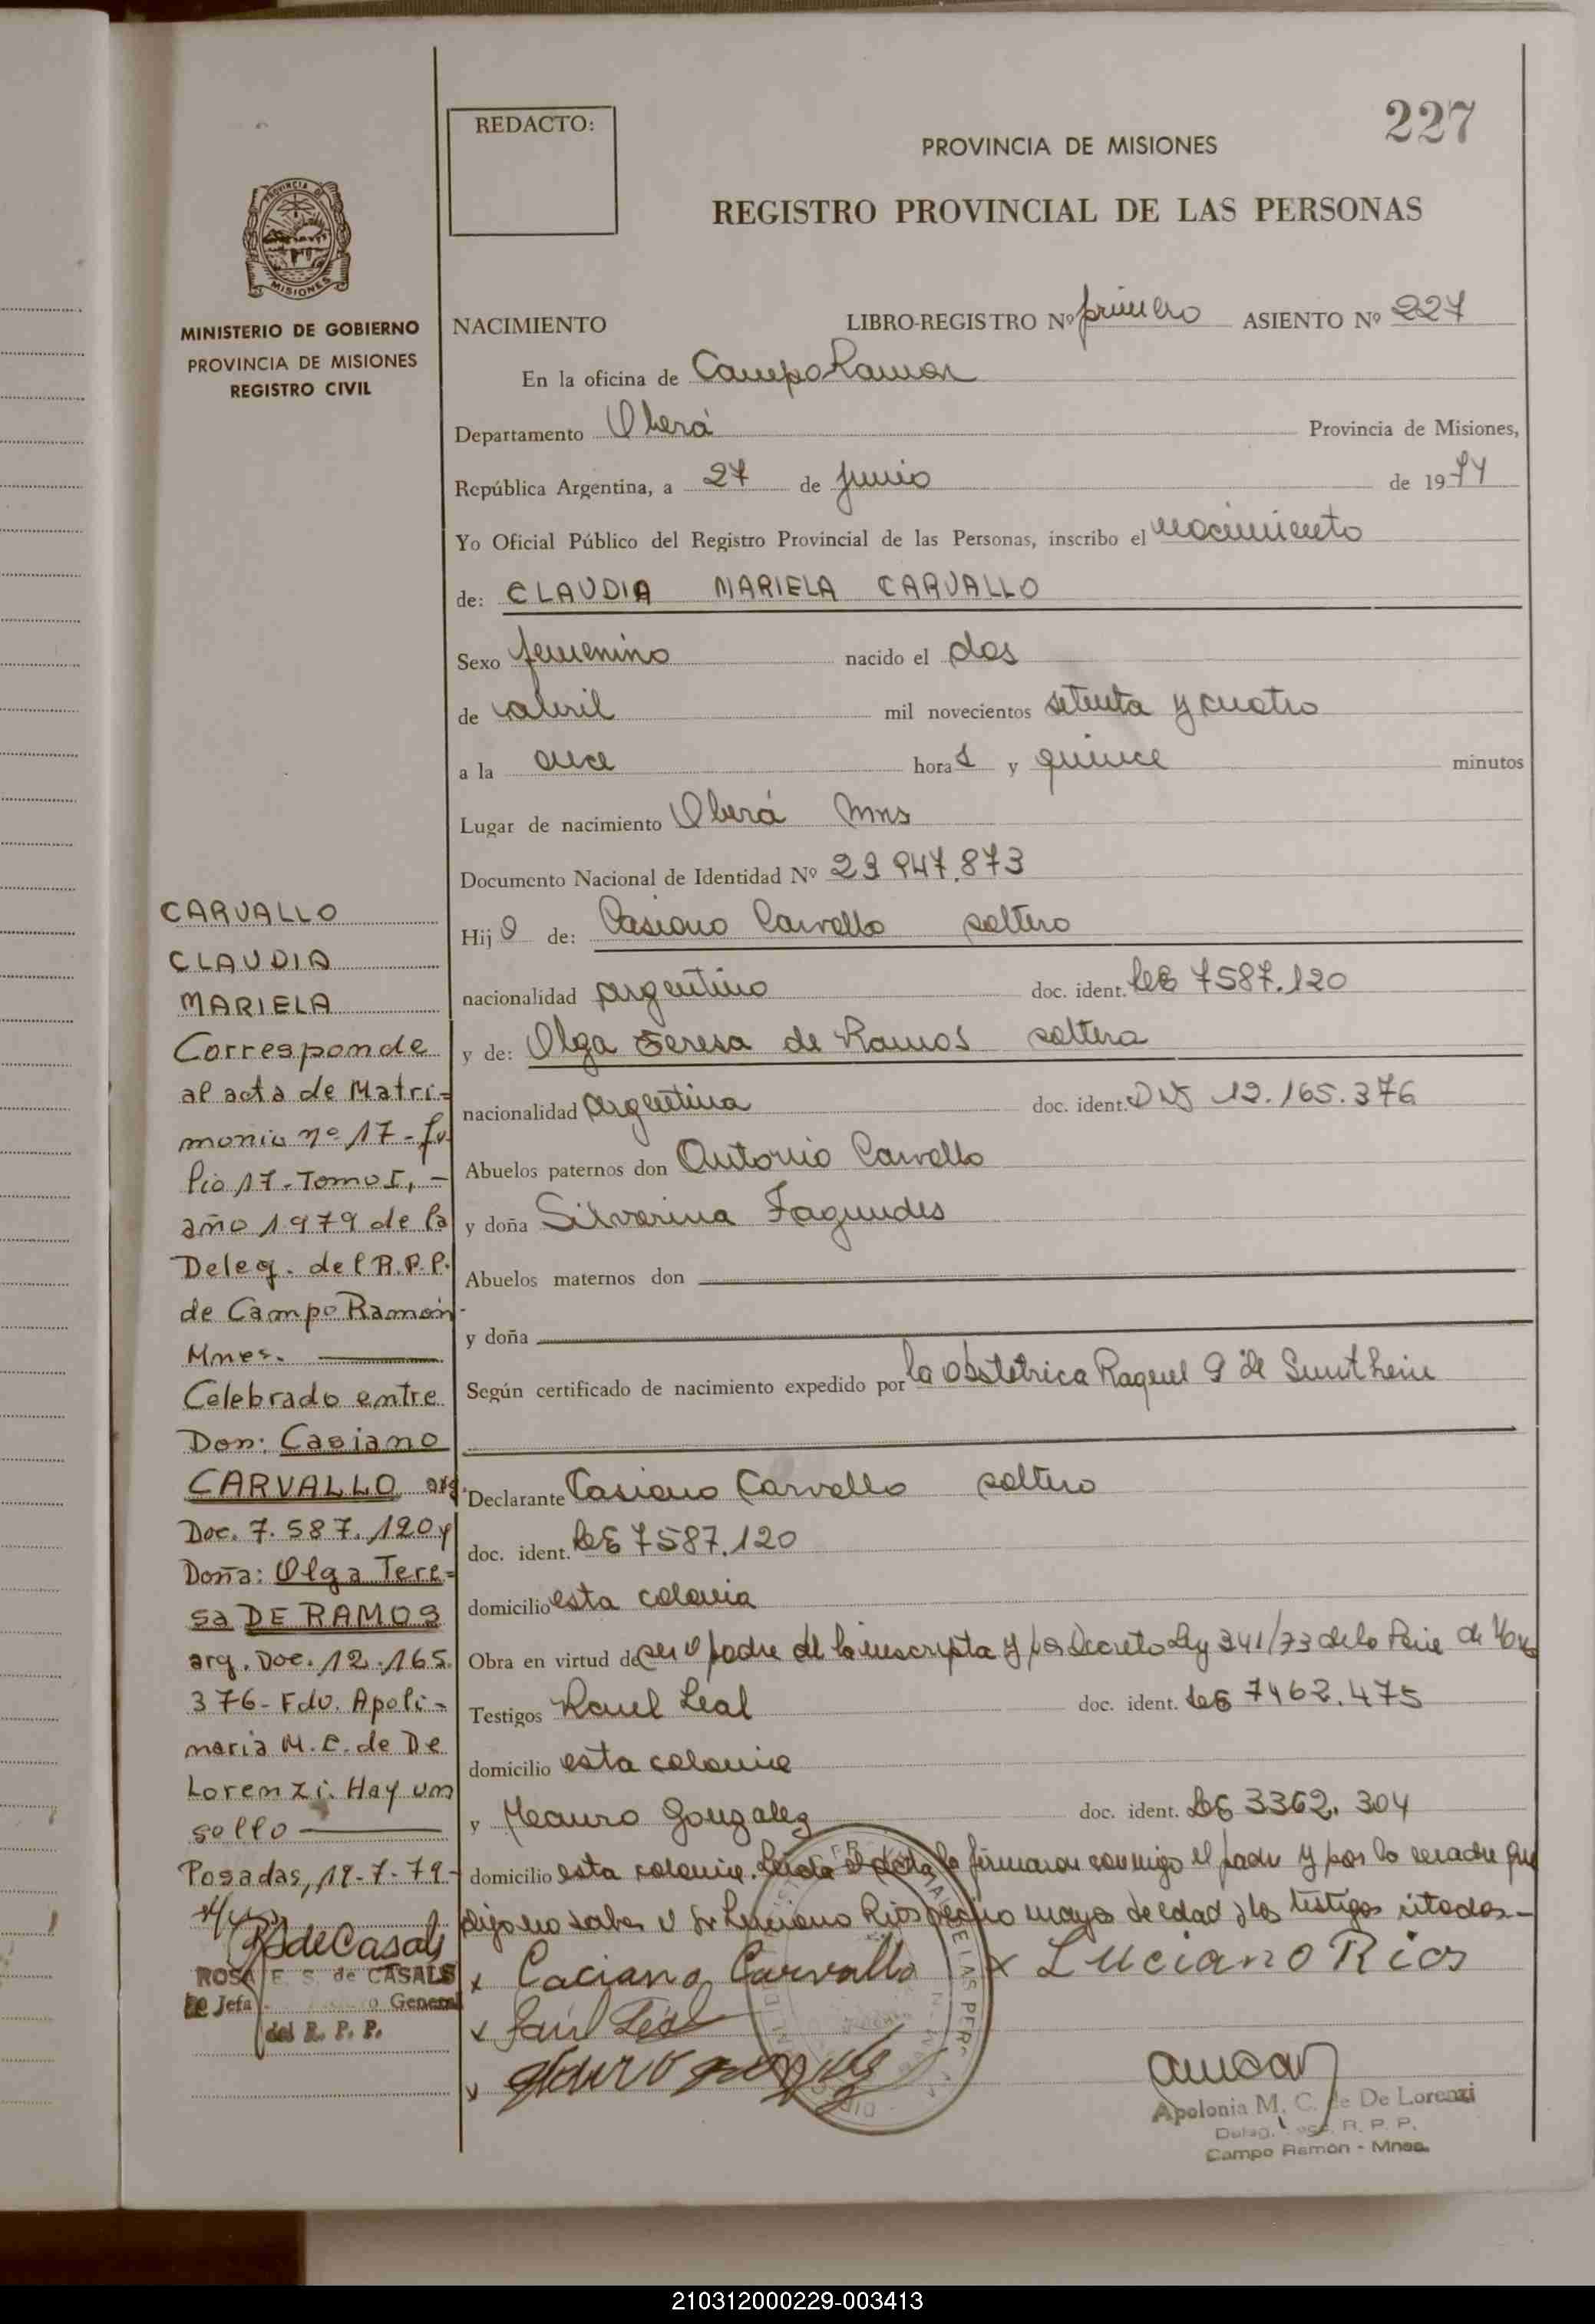 227
REDACTO:
PROVINCIA DE MISIONES
REGISTRO PROVINCIAL DE LAS PERSONAS
PROVINCIA DE
MISIONES
MINISTERIO DE GOBIERNO
PROVINCIA DE MISIONES
REGISTRO CIVIL
NACIMIENTO LIBRO-REGISTRO Nº primero ASIENTO Nº 227
En la oficina de Campo Ramon
Departamento Oberá Provincia de Misiones,
República Argentina, a 27 de junio de 1974
Yo Oficial Público del Registro Provincial de las Personas, inscribo el nacimiento
de: CLAUDIA MARIELA CARVALLO
Sexo femenino nacido el dos
de abril mil novecientos setenta y cuatro
a la once horas y quince minutos
Lugar de nacimiento Oberá Mns
Documento Nacional de Identidad Nº 23 947.873
Hij a de: Casiano Carvallo soltero
nacionalidad argentino doc. ident. LE 7587.120
y de: Olga Teresa de Ramos soltera
nacionalidad argentina doc. ident. DNI 12.165.376
Abuelos paternos don Antonio Carvallo
y doña Silvarina Fagundes
Abuelos maternos don
y doña
Según certificado de nacimiento expedido por la obstetrica Raquel G de
Declarante Casiano Carvallo soltero
doc. ident. LE 7587.120
domicilio esta colonia
Obra en virtud de ser el padre de la inscripta y por Decreto Ley 341/73 de la
Testigos Raul Leal doc. ident. LE 7462.475
domicilio esta colonia
y Mauro Gonzalez doc. ident. LE 3362.304
domicilio esta colonia. Leida el acta la firmaron conmigo el padre y por la madre que
dijo no saber el Sr Luciano Rios vecino mayor de edad y los testigos citados.-
x Caciano Carvallo x Luciano Rios
x Raul Leal
x Mauro Gonzalez
Apolonia M. C. de De Lorenzi
R. P. P.
Campo Ramón - Mnes.
CARVALLO
CLAUDIA
MARIELA
Corresponde
al acta de Matri=
monio nº 17- fo
lio 17-Tomo I, -
año 1979 de la
Deleg. del R.P.P.
de Campo Ramón-
Mnes.
Celebrado entre
Don: Casiano
CARVALLO arg.
Doc. 7.587.120 y
Doña: Olga Tere=
sa DE RAMOS
arg. Doc. 12.165.
376- Fdo. Apoli=
naria M.C. de De
Lorenzi. Hay un
sello
Posadas, 12-7-79-
R de Casals
ROSA E. S. de CASALS
Jefa General
del R. P. P.
210312000229-003413